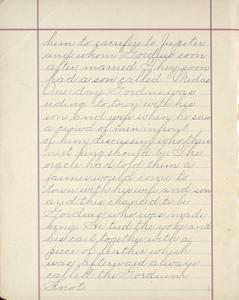 him to sacrifice to Jupiter
and whom Gordius soon
after married. They soon
had a son called Midas
One day Gordius was
riding to town with his
son and wife when he saw
a crowd of men infront
of him discussing who their
next king should be. The
oracle had told them a
farmer would come to
town with his wife and son
and this chanced to be
Gordius who was made
king. He tied the yoke and
his cart together with a
piece of leather which
was afterward always
called the Gordium
Knot.